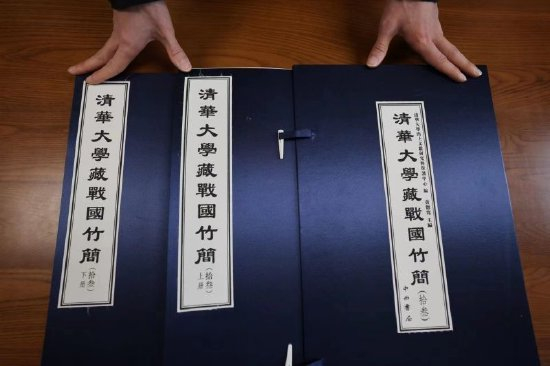 清華大學藏戰國竹簡(拾叁)
下册
清華大學藏戰國竹簡(拾叁)
上册
清華大學出土文獻研究與保護中心 編
黃德寬 主編
清華大學藏戰國竹簡(拾叁)
中西書局